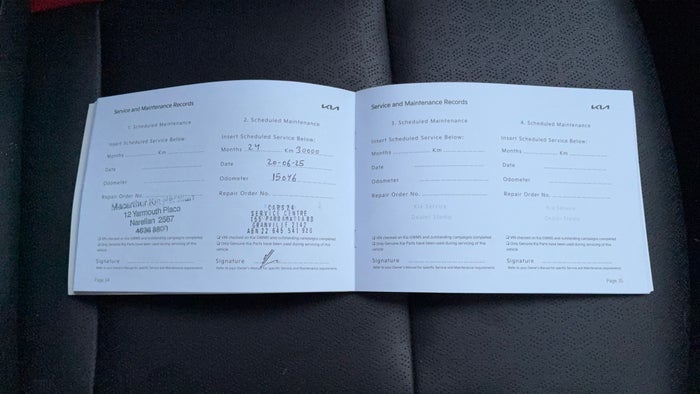 Service and Maintenance Records
KIA
1. Scheduled Maintenance
Insert Scheduled Service Below:
Months Km
Date
Odometer
Repair Order No.
Macarthur Kia Narellan
12 Yarmouth Place
Narellan 2567
4636 8801
VIN checked on Kia GWMS and outstanding campaigns completed
Only Genuine Kia Parts have been used during servicing of this
vehicle
Signature
Refer to your Owner's Manual for specific Service and Maintenance requirements
Page 34
2. Scheduled Maintenance
Insert Scheduled Service Below:
Months 24 Km 30000
Date 20-06-25
Odometer 15046
Repair Order No.
CARS24
SERVICE CENTRE
GRANVILLE 2142
ABN 22 645 541 920
VIN checked on Kia GWMS and outstanding campaigns completed
Only Genuine Kia Parts have been used during servicing of this
vehicle
Signature
Refer to your Owner's Manual for specific Service and Maintenance requirements
Service and Maintenance Records
KIA
3. Scheduled Maintenance
Insert Scheduled Service Below:
Months Km
Date
Odometer
Repair Order No.
Kia Service
Dealer Stamp
VIN checked on Kia GWMS and outstanding campaigns completed
Only Genuine Kia Parts have been used during servicing of this
vehicle
Signature
Refer to your Owner's Manual for specific Service and Maintenance requirements
4. Scheduled Maintenance
Insert Scheduled Service Below:
Months Km
Date
Odometer
Repair Order No.
Kia Service
Dealer Stamp
VIN checked on Kia GWMS and outstanding campaigns completed
Only Genuine Kia Parts have been used during servicing of this
vehicle
Signature
Refer to your Owner's Manual for specific Service and Maintenance requirements
Page 35